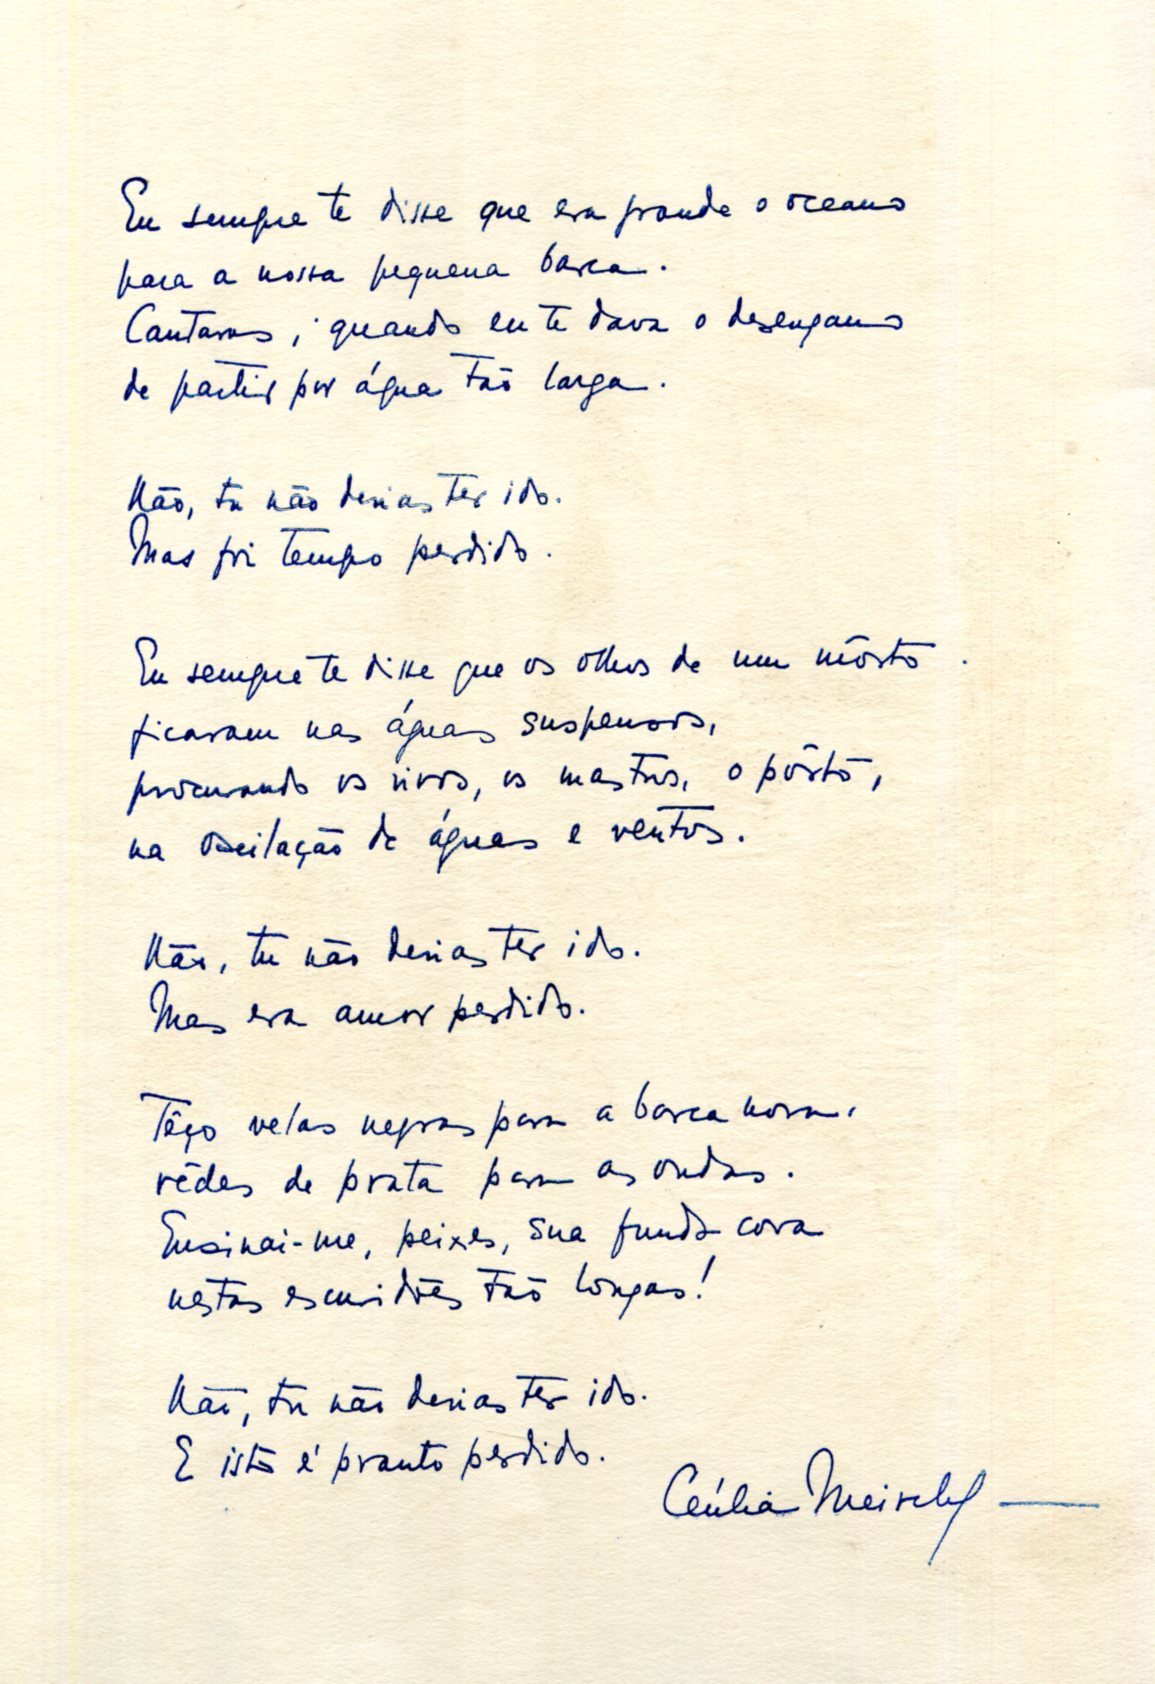 Eu sempre te disse que era grande o oceano
para a nossa pequena barca.
Cantavas, quando eu te dava o desengano
de partir por água tão larga.
Não, tu não devias ter ido.
Mas foi tempo perdido.
Eu sempre te disse que os olhos de um môrto
ficavam nas águas suspensos,
procurando os vivos, os mastros, o pôrto,
na oscilação de águas e ventos.
Não, tu não devias ter ido.
Mas era amor perdido.
Têço velas negras para a barca nova,
rêdes de prata para as ondas.
Ensinai-me, peixes, sua funda cova
nestas escuridões tão longas!
Não, tu não devias ter ido.
E isto é pranto perdido.
Cecília Meireles